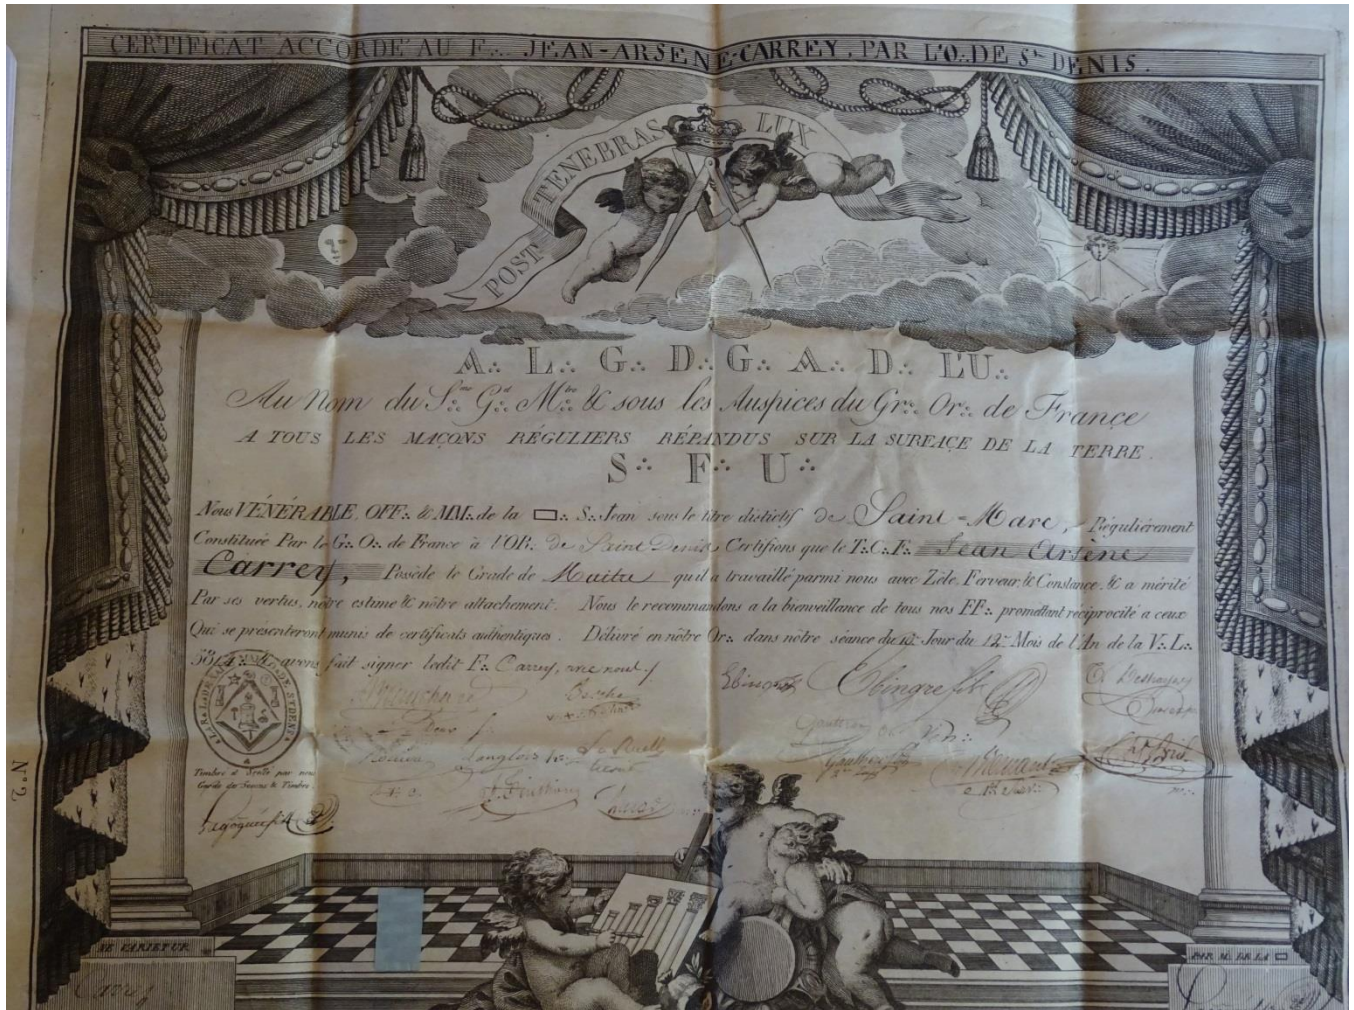 CERTIFICAT ACCORDÉ AU F∴ JEAN-ARSENE-CARREY, PAR L'O∴ DE St DENIS.
POST TENEBRAS LUX
A∴ L∴ G∴ D∴ G∴ A∴ D∴ L'U∴
Au nom du S∴me G∴d M∴tre & sous les Auspices du Gr∴ Or∴ de France
A TOUS LES MAÇONS RÉGULIERS RÉPANDUS SUR LA SURFAÇE DE LA TERRE.
S∴ F∴ U∴
Nous VÉNÉRABLE, OFF∴ & MM∴ de la ▭∴ S∴ Jean sous le titre distictif de Saint=Marc, Régulièrement
Constituée Par le G∴ O∴ de France à l'OR∴ de Saint Denis Certifions que le T∴ C∴ F∴ Jean Arsène
Carrey, Possède le Grade de Maitre qu'il a travaillé parmi nous avec Zèle, Ferveur, & Constance, & a mérité
Par ses vertus, nôtre estime & nôtre attachement. Nous le recommandons a la bienveillance de tous nos FF∴ promettant réciprocité a ceux
Qui se présenteront munis de certificats authentiques. Délivré en nôtre Or∴ dans nôtre séance du Jour du 12me Mois de l'An de la V∴ L∴
avons fait signer ledit F∴ Carrey,
Ebingre fils
Timbré & Scellé par nous
Garde des Sceaux & Timbre.
Langlois
Gauthier
N° 2
NE VARIETUR
PAR M. DE LA ▭
Carrey